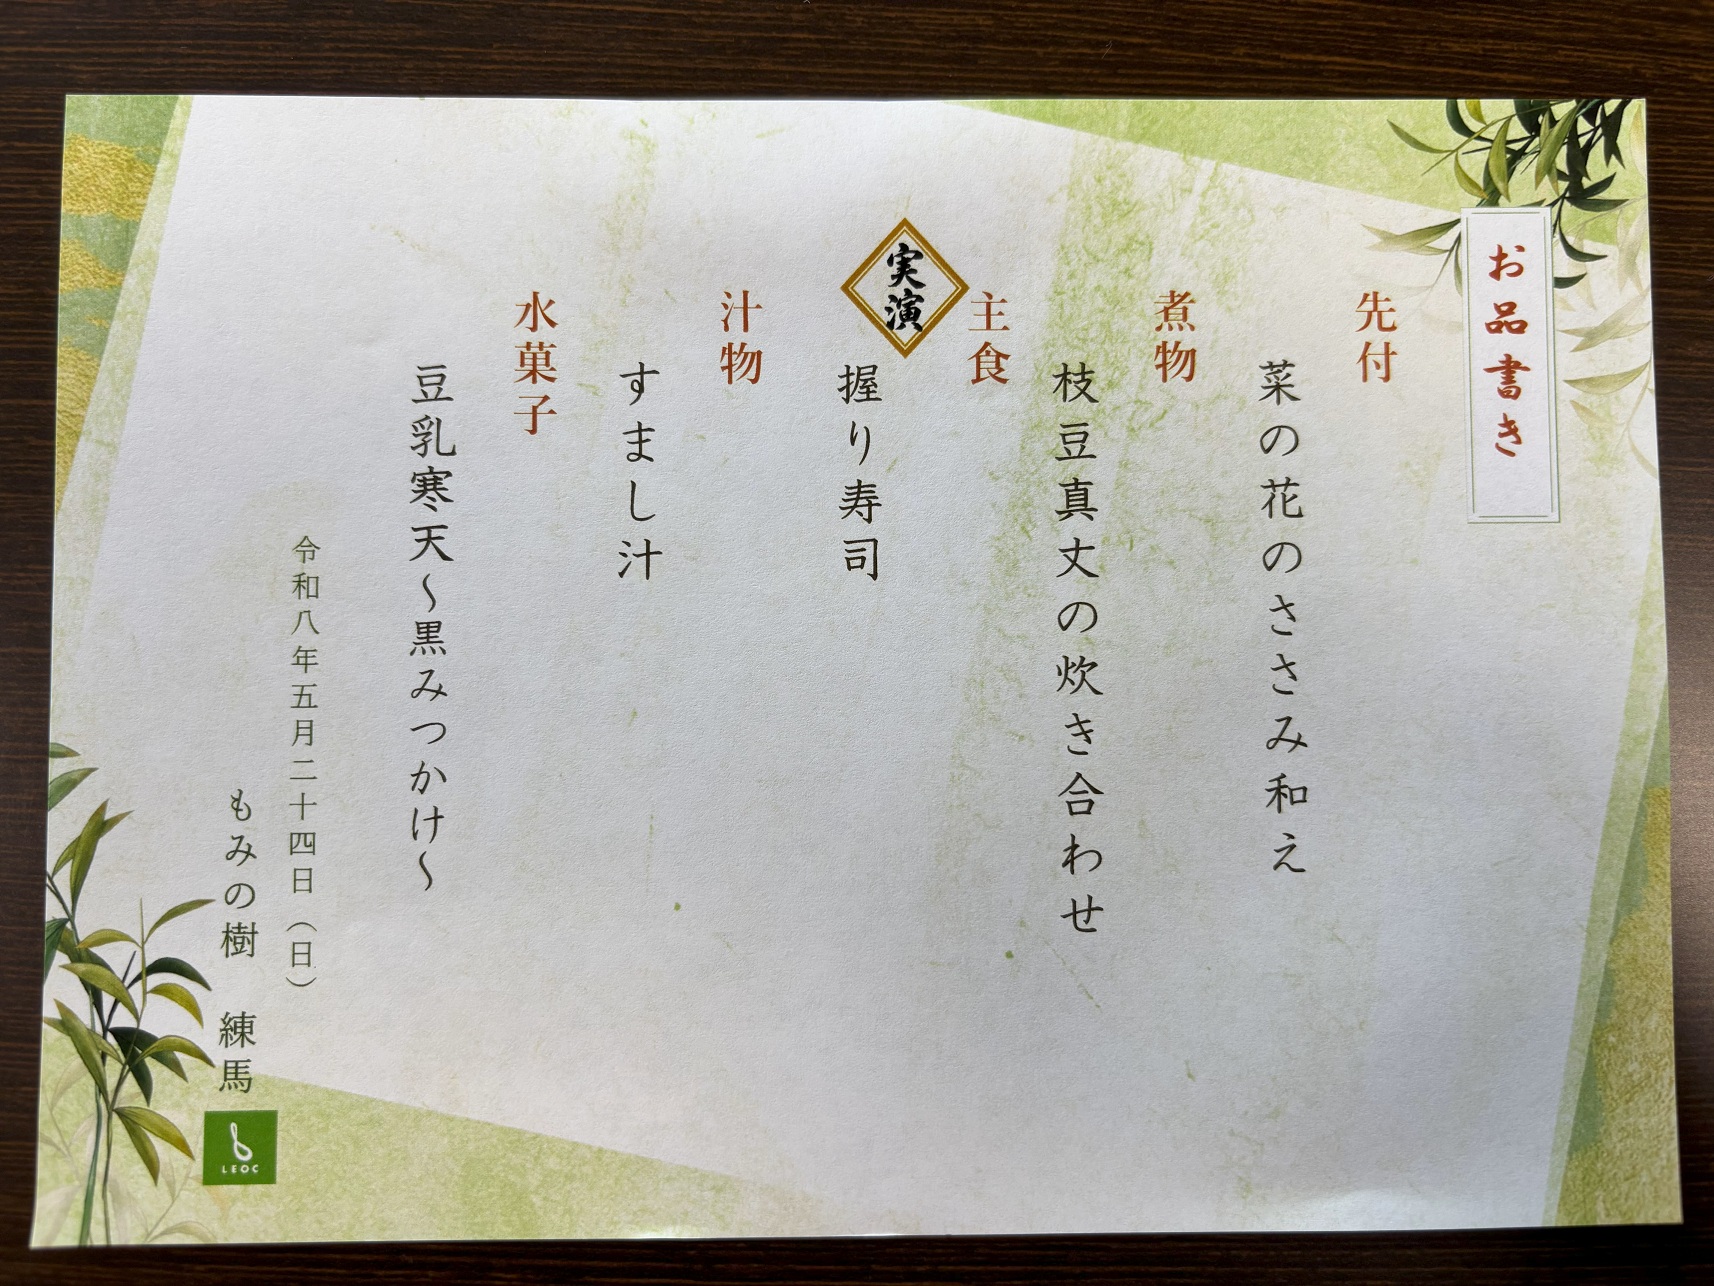 お品書き
先付
菜の花のささみ和え
煮物
枝豆真丈の炊き合わせ
主食
実演
握り寿司
汁物
すまし汁
水菓子
豆乳寒天～黒みつかけ～
令和八年五月二十四日（日）
もみの樹　練馬
LEOC